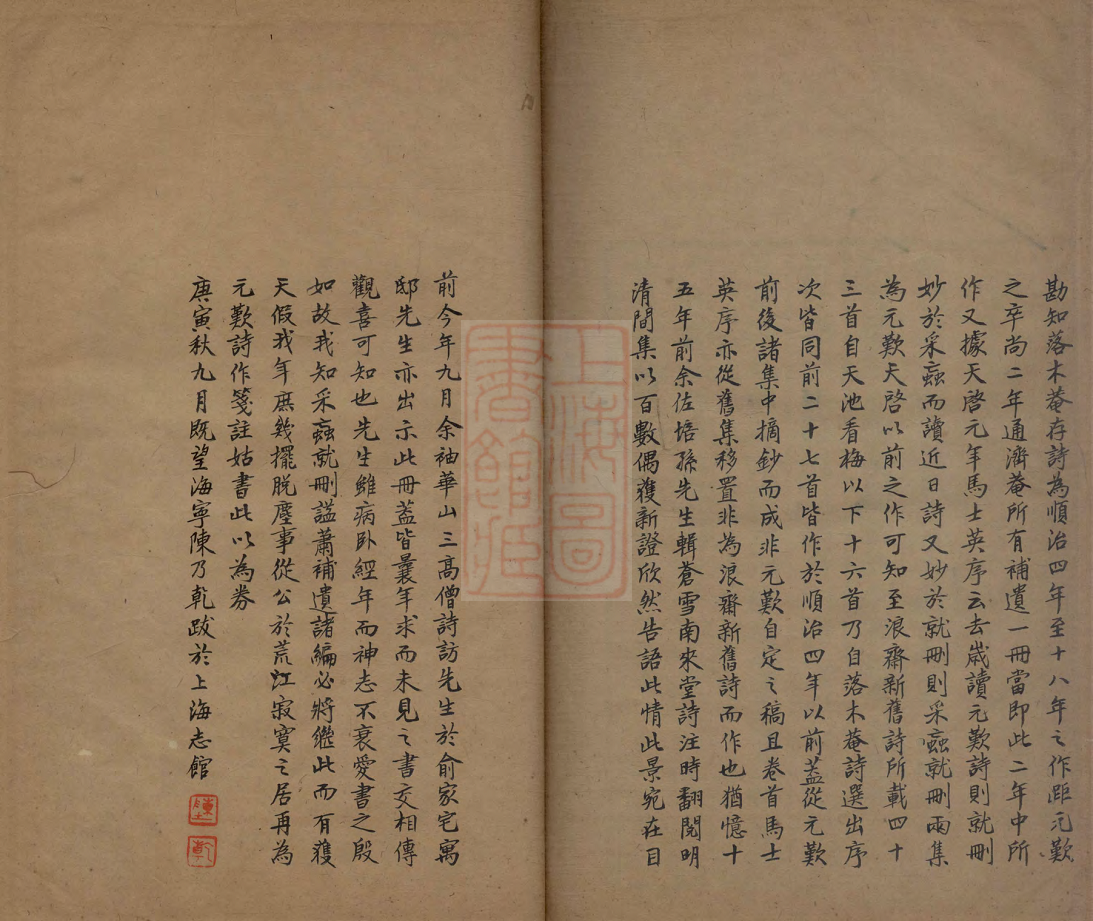 勘知落木菴存詩為順治四年至十八年之作距元歎
之卒尚二年通濟菴所有補遺一冊當即此二年中所
作又據天啓元年馬士英序云去歲讀元歎詩則就刪
妙於采蝱而讀近日詩又妙於就刪則采蝱就刪兩集
為元歎天啓以前之作可知至浪齋新舊詩所載四十
三首自天池看梅以下十六首乃自落木菴詩選出序
次皆同前二十七首皆作於順治四年以前葢從元歎
前後諸集中摘鈔而成非元歎自定之稿且卷首馬士
英序亦從舊集移置非為浪齋新舊詩而作也猶憶十
五年前余佐㙛孫先生輯蒼雪南來堂詩注時翻閱明
清間集以百數偶獲新證欣然告語此情此景宛在目
前今年九月余袖華山三高僧詩訪先生於俞家宅寓
邸先生亦出示此冊葢皆曩年求而未見之書交相傳
觀喜可知也先生雖病卧經年而神志不衰愛書之殷
如故我知采蝱就刪諡蕭補遺諸編必將繼此而有獲
天假我年庶幾擺脱塵事從公於荒江寂寞之居再為
元歎詩作箋註姑書此以為券
庚寅秋九月既望海寧陳乃乾跋於上海志館
上海圖
書館藏